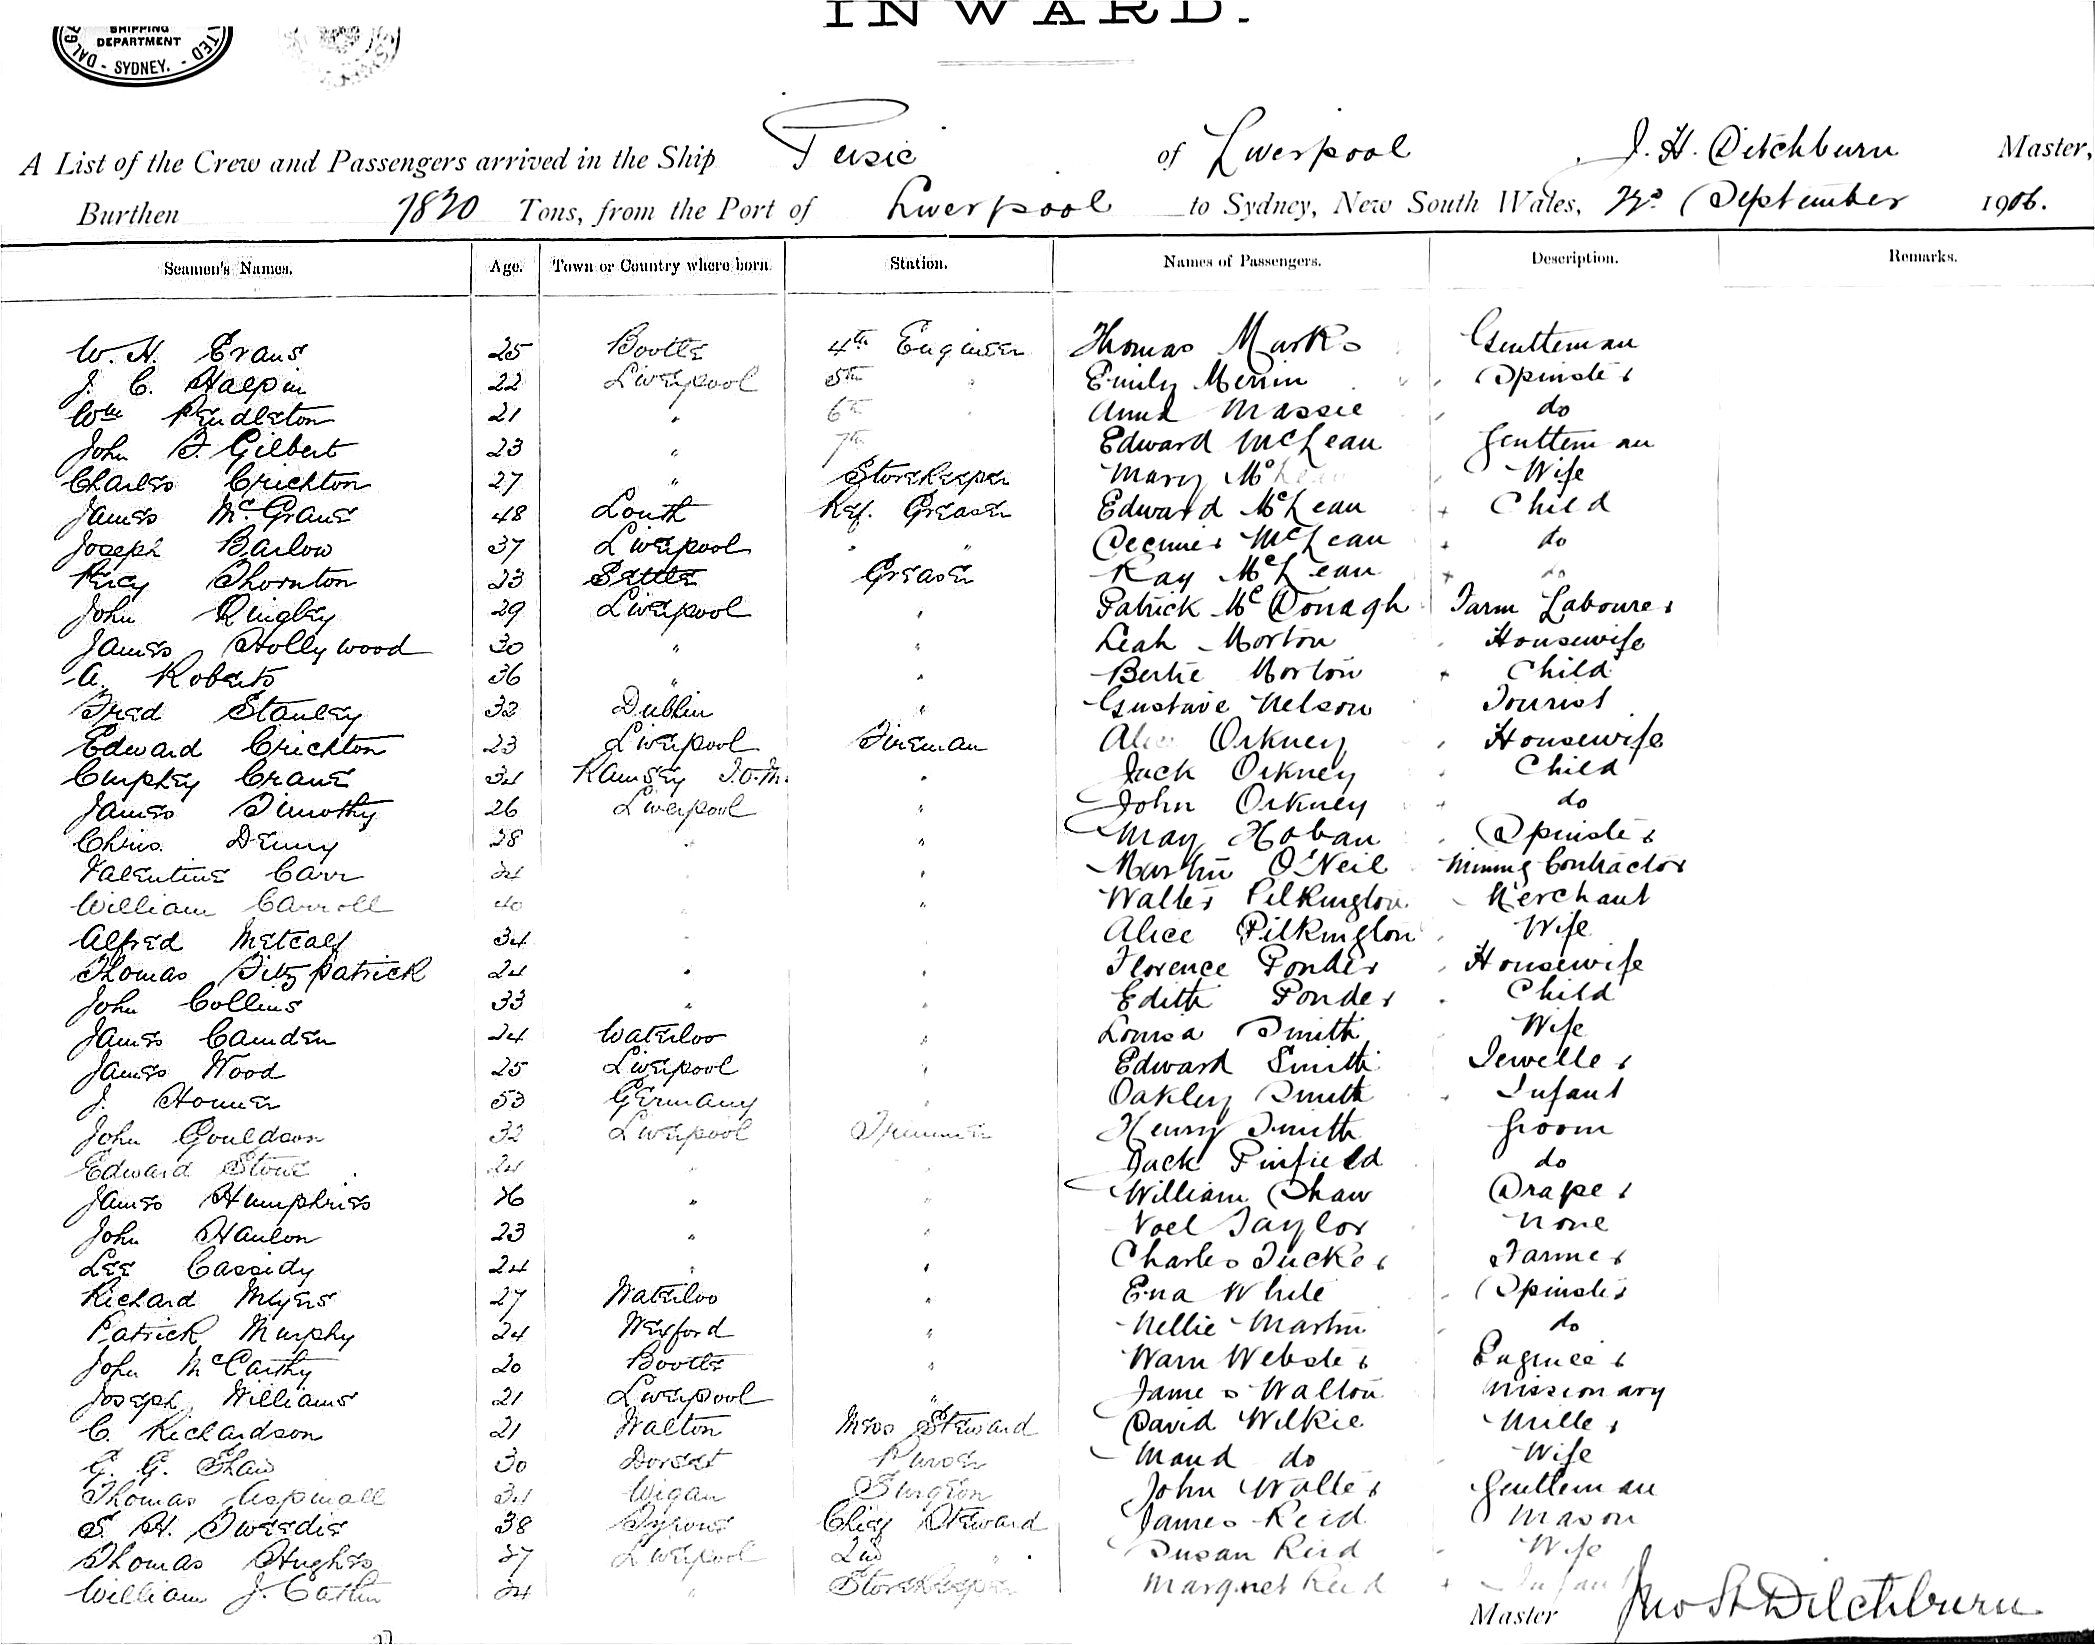 INWARD.
SHIPPING
DEPARTMENT
SYDNEY.
A List of the Crew and Passengers arrived in the Ship Persic of Liverpool, J. H. Ditchburn Master,
Burthen 7820 Tons, from the Port of Liverpool to Sydney, New South Wales, September 1906.
Seamen's Names. Age. Town or Country where born. Station. Names of Passengers. Description. Remarks.
W. H. Evans 25 Bootle 4th Engineer Thomas Marks Gentleman
J. C. Halpin 22 Liverpool 5th " Emily Merrin Spinster
Wm Pendleton 21 " 6th Anna Massie do
John F. Gilbert 23 " 7th Edward McLean Gentleman
Charles Crichton 27 " Storekeeper Mary McLean Wife
James McGrane 48 Louth Ref. Greaser Edward McLean Child
Joseph Barlow 37 Liverpool " " McLean do
Percy Thornton 23 Greaser Ray McLean do
John Quigley 29 Liverpool " Patrick McDonagh Farm Labourer
James Hollywood 30 " " Leah Morton Housewife
A. Roberts 36 " " Bertie Morton Child
Fred Stanley 32 Dublin " Gustave Nelson Tourist
Edward Crichton 23 Liverpool Fireman Alice Orkney Housewife
Crane 34 Ramsey I.O.M. " Jack Orkney Child
James Timothy 26 Liverpool " John Orkney do
Chris. Denny 28 " " May Hoban Spinster
Valentine Carr 24 " Martin O'Neil Mining Contractor
William Carroll 40 " " Walter Pilkington Merchant
Alfred Metcalf 34 " Alice Pilkington Wife
Thomas Fitzpatrick 24 " " Florence Ponder Housewife
John Collins 33 " " Edith Ponder Child
James Camden 24 Waterloo " Louisa Smith Wife
James Wood 25 Liverpool " Edward Smith Jeweller
J. Homer 53 Germany " Oakley Smith Infant
John Gouldson 32 Liverpool Trimmer Henry Smith Groom
Edward Stone 24 " " Jack Pinfield do
James Humphries 26 " " William Shaw Draper
John Hanlon 23 " " Noel Taylor None
Lee Cassidy 24 " " Charles Tucker Farmer
Richard Myers 27 Waterloo " Ena White Spinster
Patrick Murphy 24 Wexford " Nellie Martin do
John McCarthy 20 Bootle " Warn Webster Engineer
Joseph Williams 21 Liverpool " James Walton Missionary
C. Richardson 21 Walton Mess Steward David Wilkie Miller
G. G. Shaw 30 Dorset Purser Maud do Wife
Thomas Aspinall 34 Wigan Surgeon John Walter Gentleman
S. H. Tweedie 38 Tyrone Chief Steward James Reid Mason
Thomas Hughes 27 Liverpool 2nd " Susan Reid Wife
William J. Catlin 24 " Storekeeper Margaret Reid Infant
Master Jno H Ditchburn